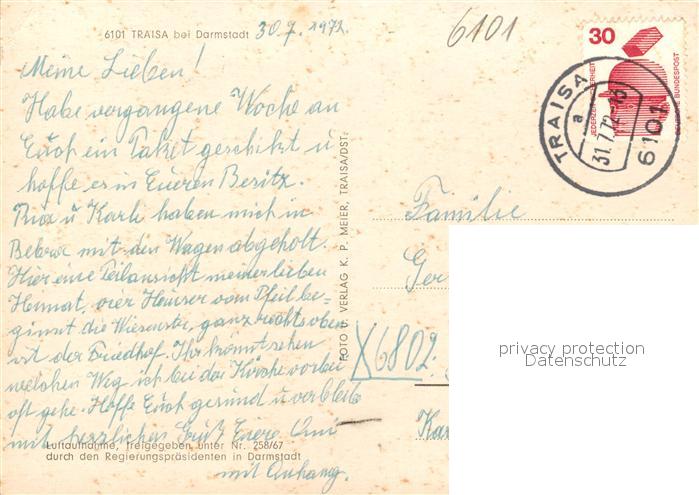 6101 TRAISA bei Darmstadt 30.7.1972.
6101
30
JEDERZEIT SICHERHEIT
DEUTSCHE BUNDESPOST
TRAISA
a
31.7.72-15
6101
Meine Lieben!
Habe vergangene Woche an
Euch ein Paket geschikt u
hoffe es in Eueren Besitz.
u Karli haben mich in
Bebra mit den Wagen abgeholt.
Hier eine Teilansicht meiner lieben
Heimat, vier Heuser vom Pfeil be=
ginnt die Wiesenstr, ganz rechts oben
ist der Friedhof. Ihr könnt sehen
welchen Weg ich bei der Kirche vorbei
oft gehe. Hoffe Euch gesund u verbleibe
mit herzlichen Gruß Euere Omi
mit Anhang.
Luftaufnahme, freigegeben unter Nr. 258/67
durch den Regierungspräsidenten in Darmstadt
FOTO U. VERLAG K. P. MEIER, TRAISA/DST.
Familie
Ger
X6802
Kar
privacy protection
Datenschutz